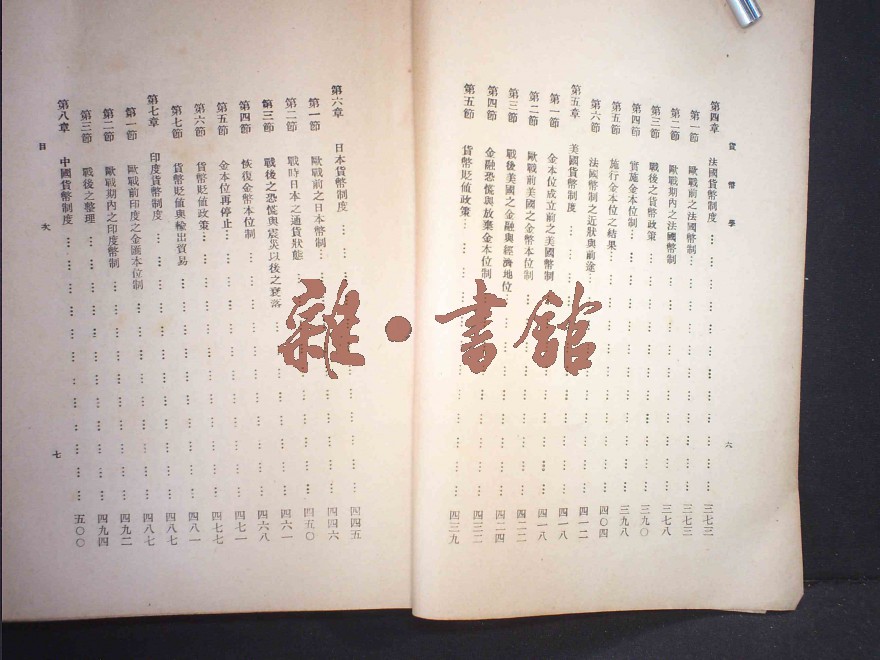 貨幣學
六
第四章 法國貨幣制度………三七三
第一節 歐戰前之法國幣制………三七三
第二節 歐戰期內之法國幣制………三七八
第三節 戰後之貨幣政策………三九〇
第四節 實施金本位制………三九八
第五節 施行金本位之結果………四〇四
第六節 法國幣制之近狀與前途………四一二
第五章 美國貨幣制度………四一八
第一節 金本位成立前之美國幣制………四一八
第二節 歐戰前美國之金幣本位制………四二二
第三節 戰後美國之金融與經濟地位………四二四
第四節 金融恐慌與放棄金本位制………四三二
第五節 貨幣貶值政策………四三九
第六章 日本貨幣制度………四四五
第一節 歐戰前之日本幣制………四四六
第二節 戰時日本之通貨狀態………四五〇
第三節 戰後之恐慌與震災以後之衰落………四六一
第四節 恢復金幣本位制………四六八
第五節 金本位再停止………四七一
第六節 貨幣貶值政策………四七七
第七節 貨幣貶值與輸出貿易………四八一
第七章 印度貨幣制度………四八七
第一節 歐戰前印度之金匯本位制………四八七
第二節 歐戰期內之印度幣制………四九二
第三節 戰後之整理………四九四
第八章 中國貨幣制度………五〇〇
目次
七
雜·書館